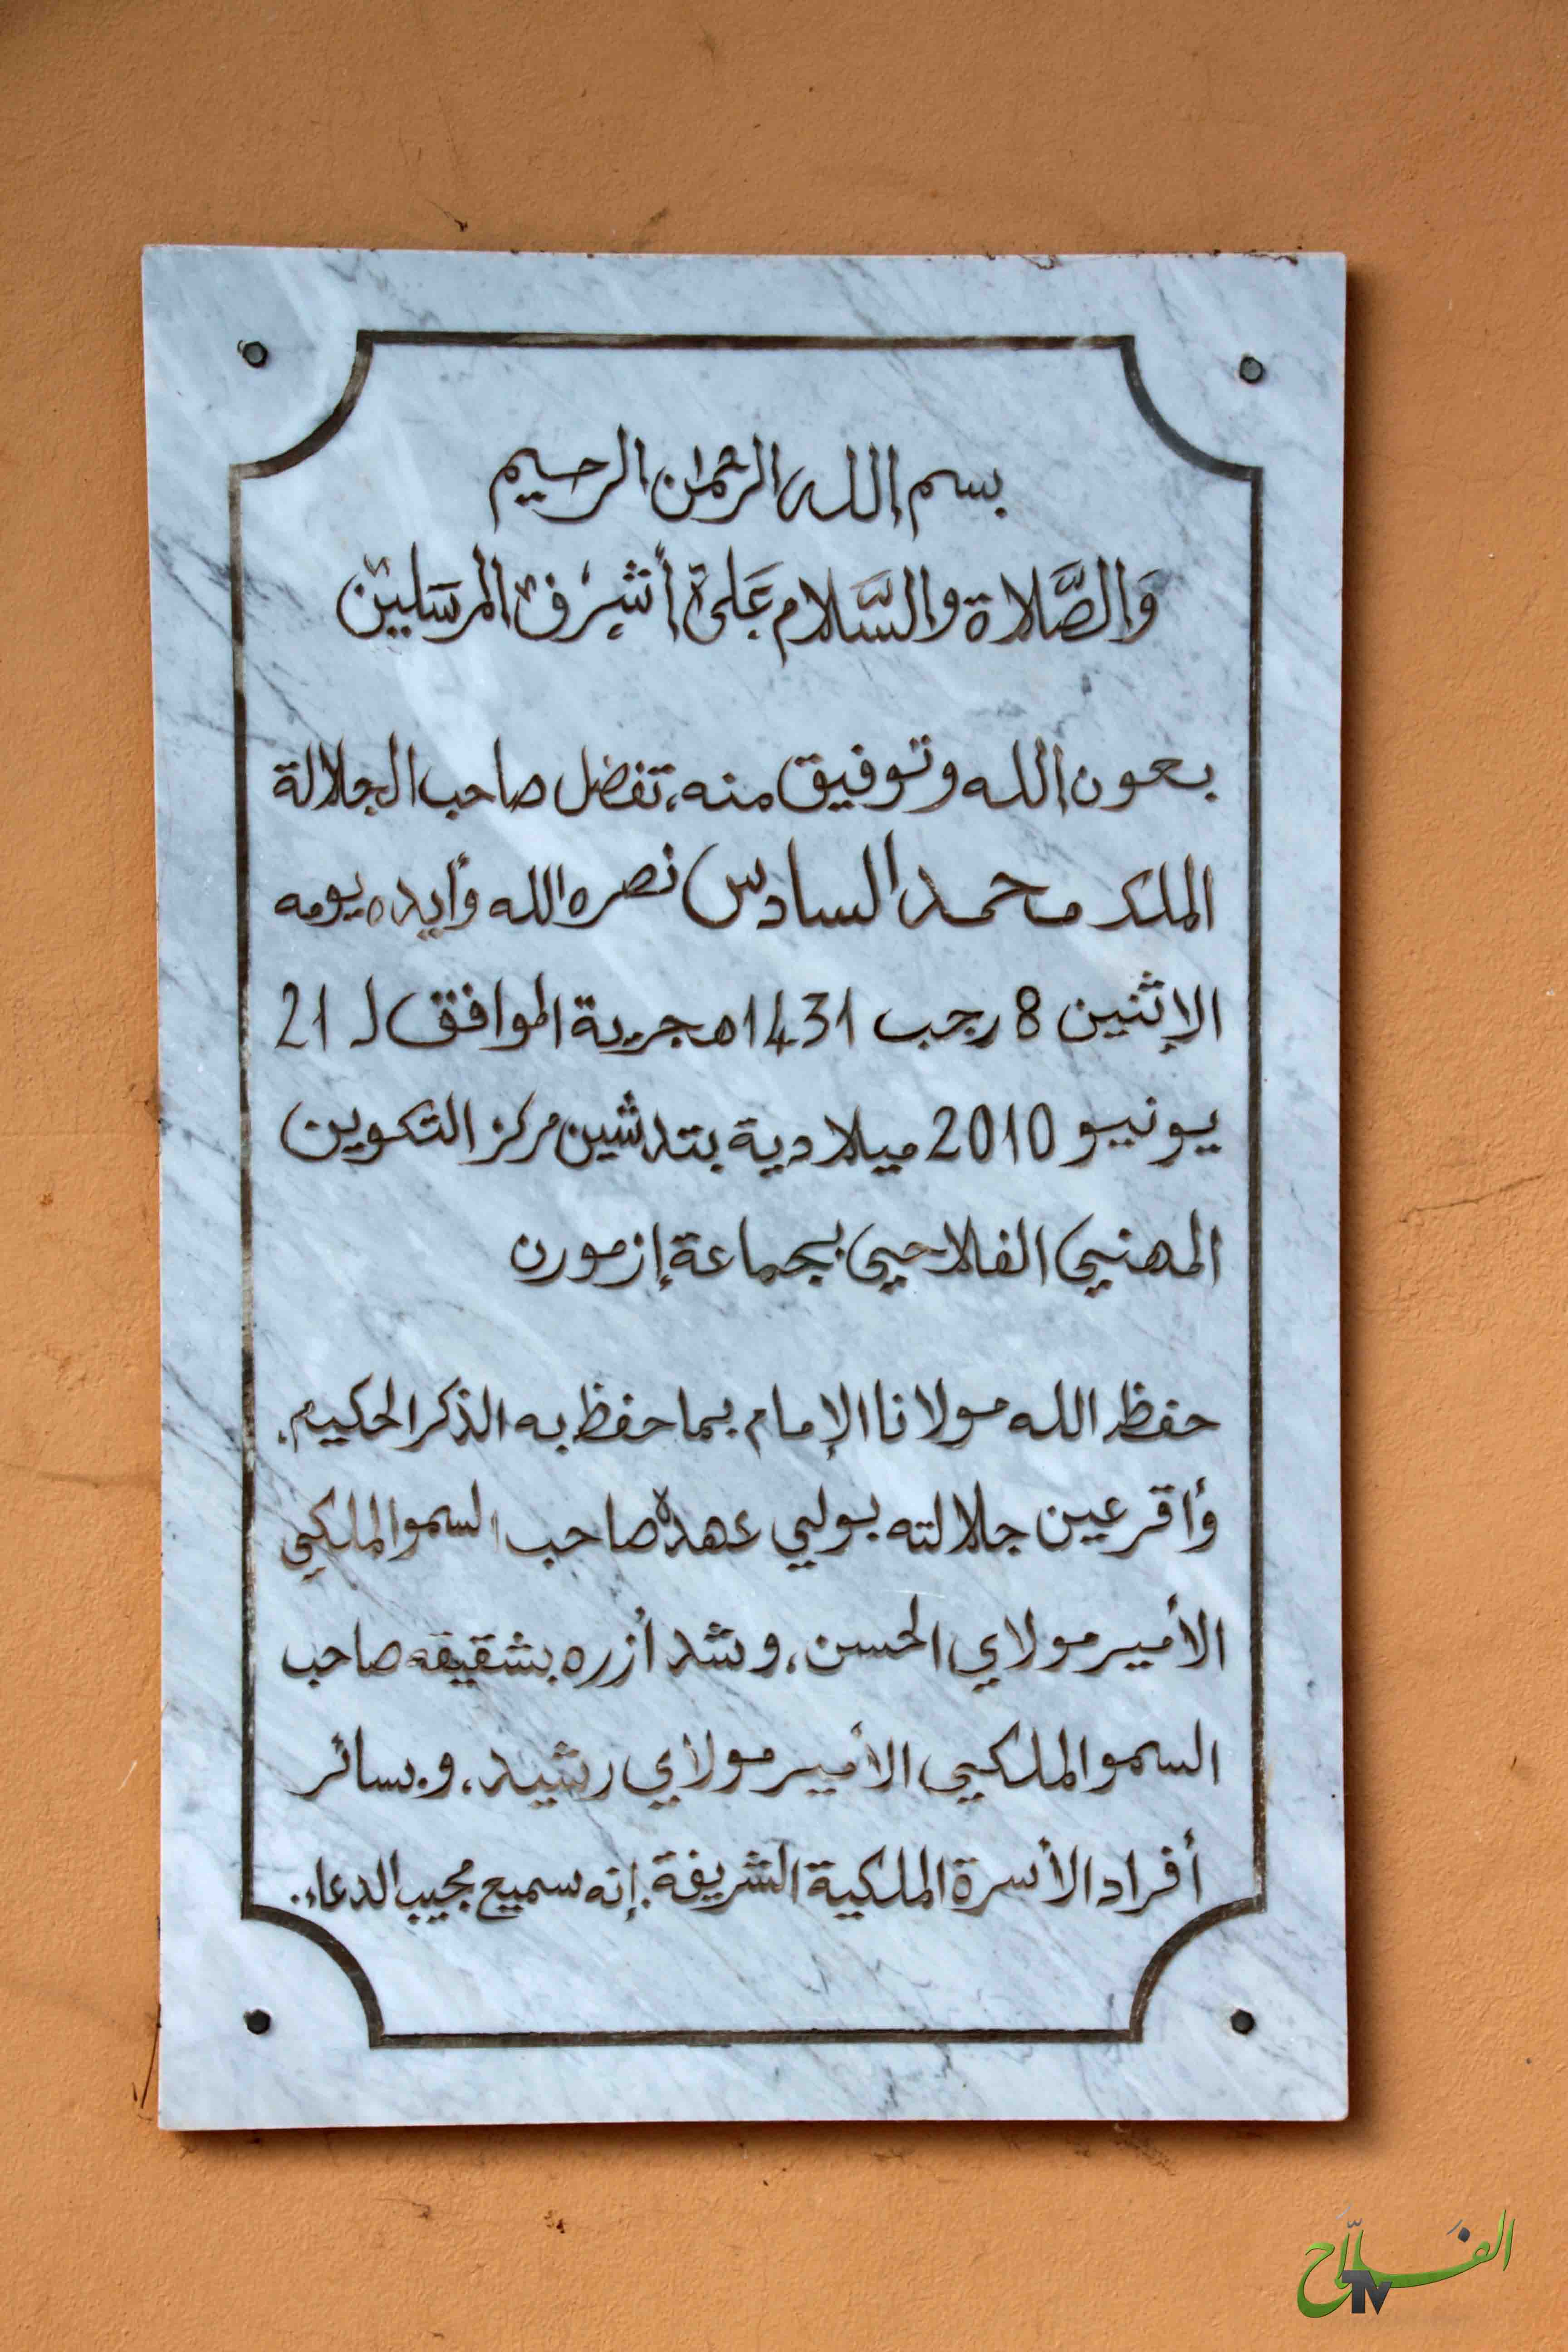 بسم الله الرحمان الرحيم
وَالصَّلاة والسَّلام عَلى أشرف المرسَلين
بعون الله وتوفيق منه، تفضل صاحب الجلالة
الملك محمد السادس نصره الله وأيده يومه
الإثنين 8 رجب 1431 هجرية الموافق لـ 21
يونيو 2010 ميلادية بتدشين مركز التكوين
المهني الفلاحي بجماعة إزمورن
حفظ الله مولانا الإمام بما حفظ به الذكر الحكيم.
وأقر عين جلالته بولي عهده صاحب السمو الملكي
الأمير مولاي الحسن، وشد أزره بشقيقه صاحب
السمو الملكي الأمير مولاي رشيد، وبسائر
أفراد الأسرة الملكية الشريفة. إنه سميع مجيب الدعاء.
الفَلاّح
TV